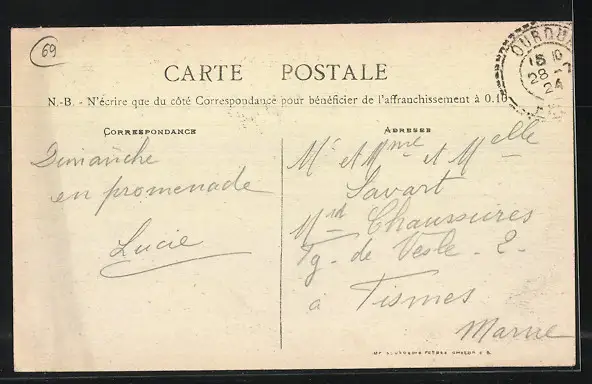 69
OUROUX
15 10
28 - 7
24
CARTE POSTALE
N.-B. - N'écrire que du côté Correspondance pour bénéficier de l'affranchissement à 0.10
CORRESPONDANCE
ADRESSE
Dimanche
en promenade
Lucie
Mr et Mme et Melle
Savart
Md Chaussures
Fg. de Vesle - 2 -
à Fismes
Marne